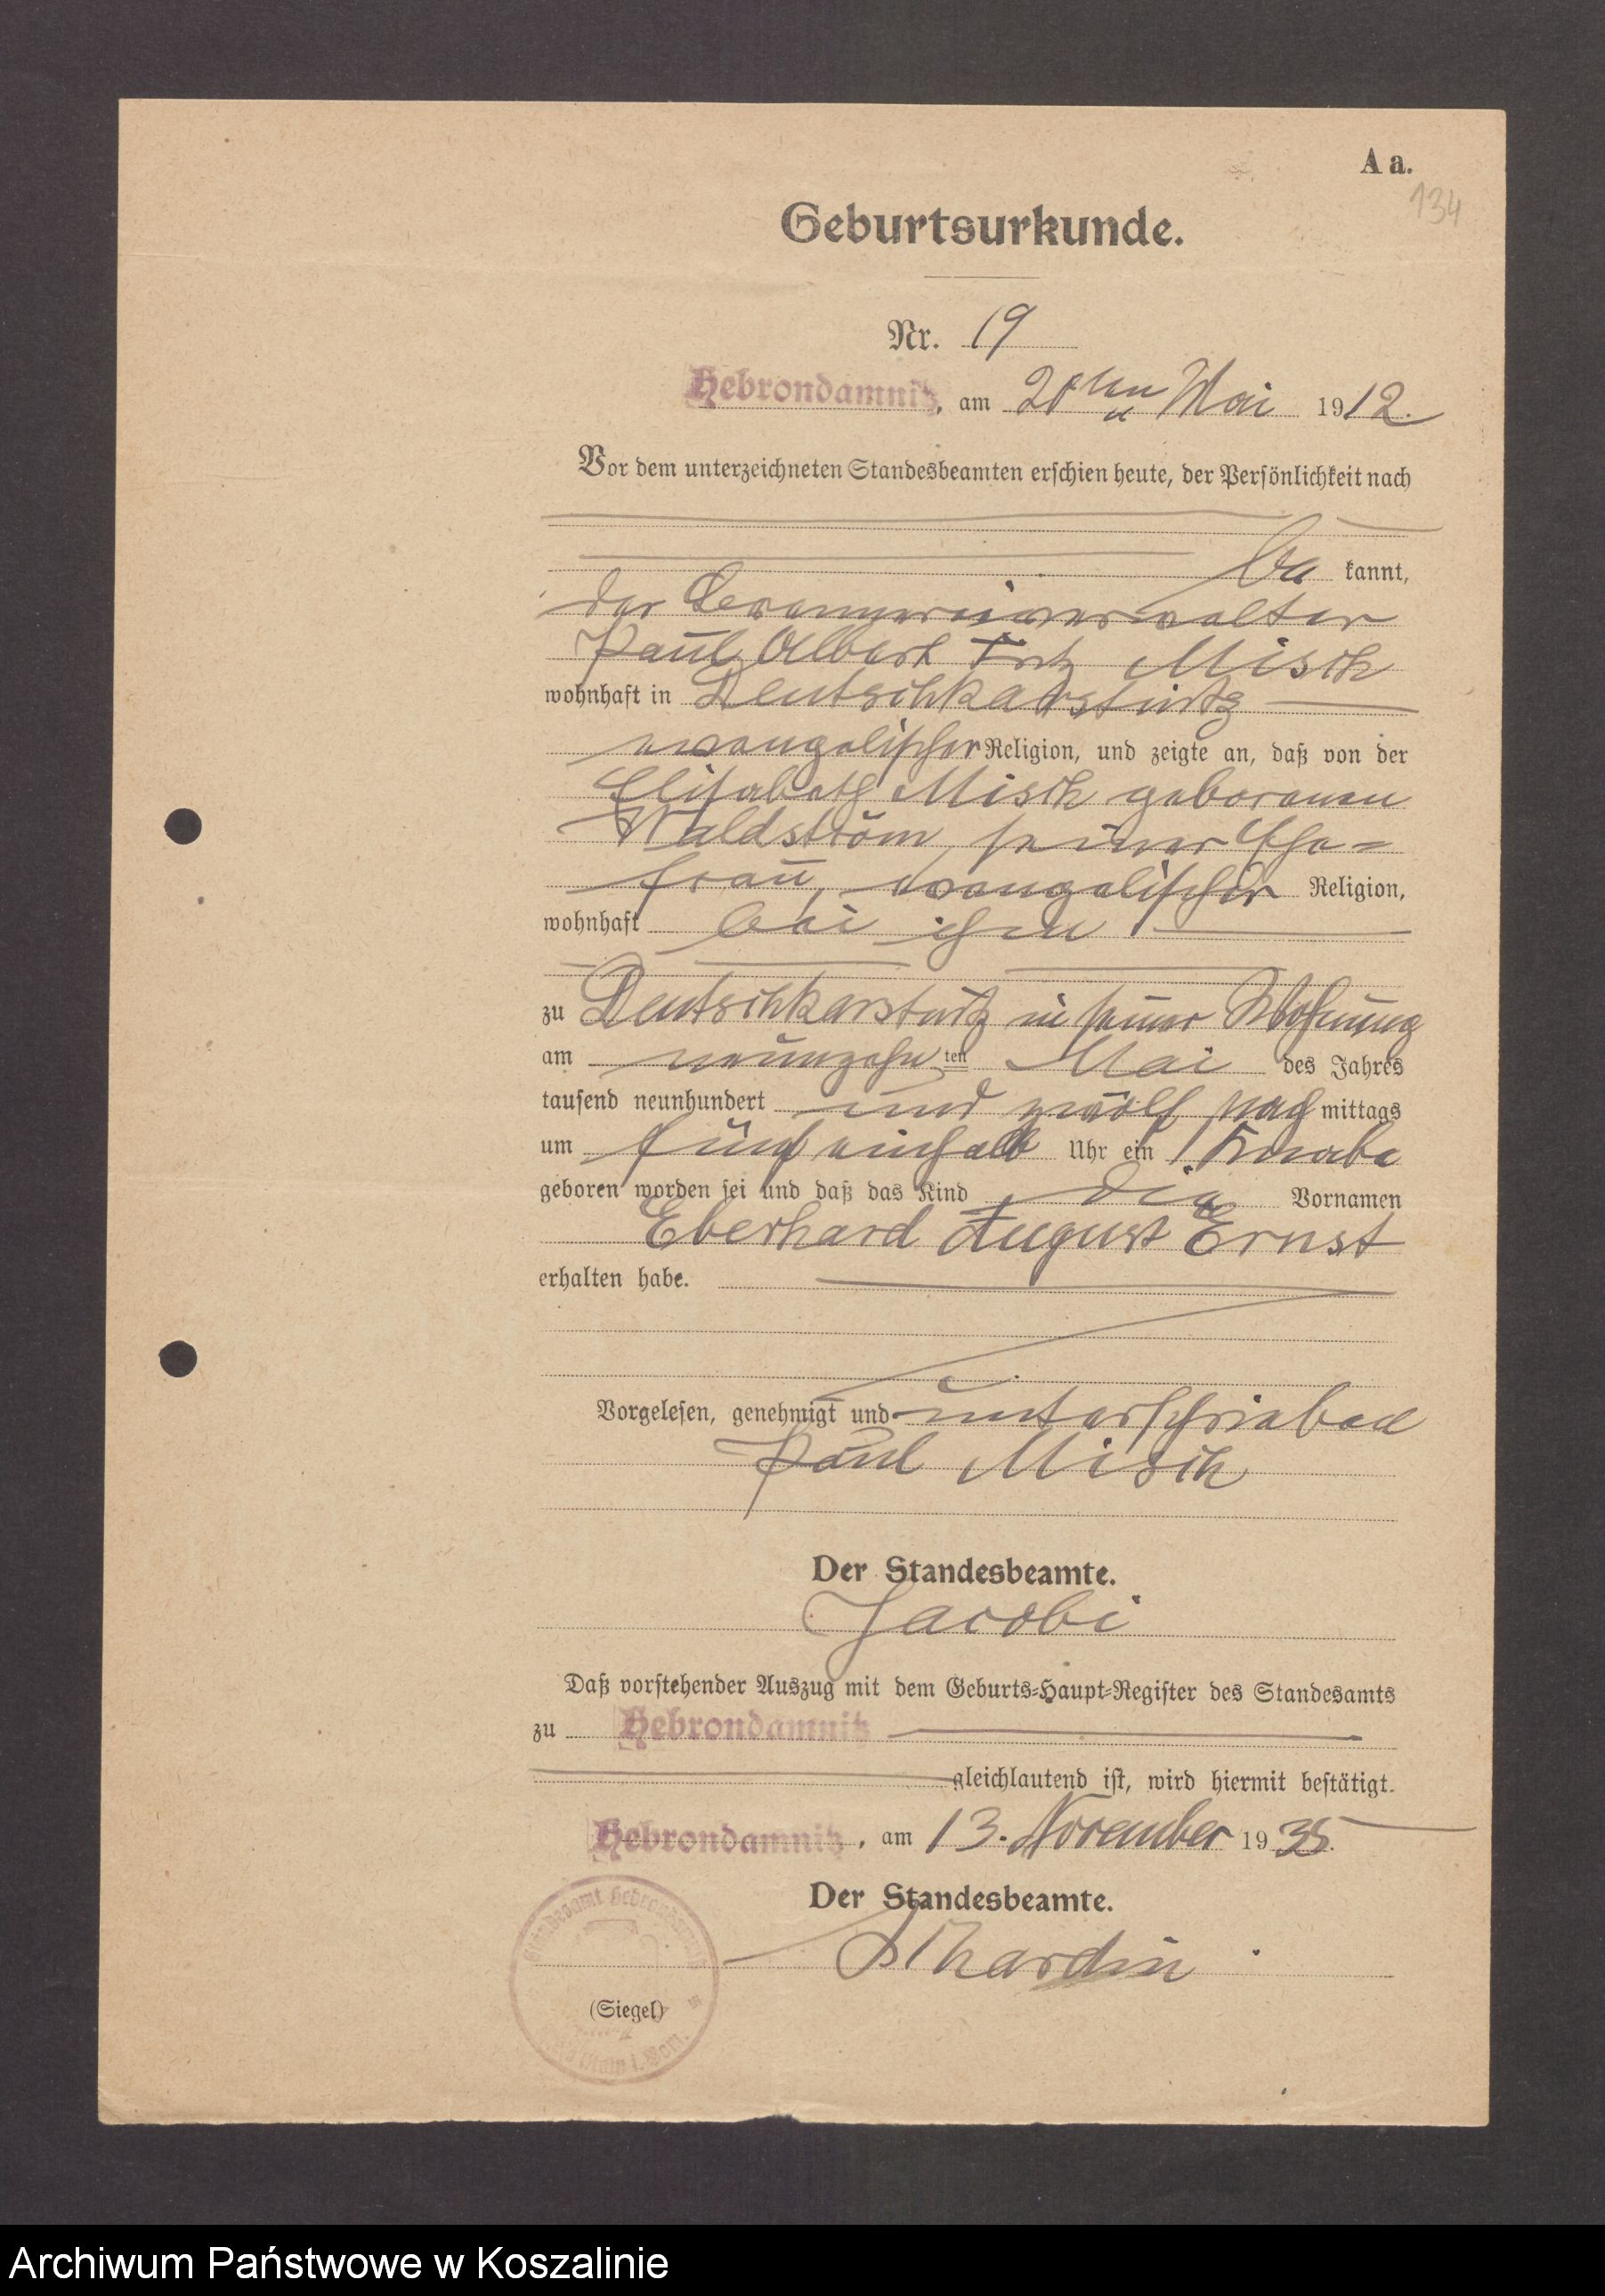 A a.
134
Geburtsurkunde.
Nr. 19
Hebrondamnitz, am 20ten Mai 1912.
Vor dem unterzeichneten Standesbeamten erschien heute, der Persönlichkeit nach
be kannt,
der Brennereiverwalter
Paul Albert Fritz Misch
wohnhaft in Deutschkarstnitz
evangelischer Religion, und zeigte an, daß von der
Elisabeth Misch geborenen
Waldström, seiner Ehe=
frau, evangelischer Religion,
wohnhaft bei ihm
zu Deutschkarstnitz in seiner Wohnung
am neunzehn ten Mai des Jahres
tausend neunhundert und zwölf nach mittags
um fünf einhalb Uhr ein Knabe
geboren worden sei und daß das Kind die Vornamen
Eberhard August Ernst
erhalten habe.
Vorgelesen, genehmigt und unterschrieben
Paul Misch
Der Standesbeamte.
Jacobi
Daß vorstehender Auszug mit dem Geburts=Haupt=Register des Standesamts
zu Hebrondamnitz
gleichlautend ist, wird hiermit bestätigt.
Hebrondamnitz, am 13. November 1935.
Der Standesbeamte.
Standesamt Hebrondamnitz
(Siegel)
Archiwum Państwowe w Koszalinie